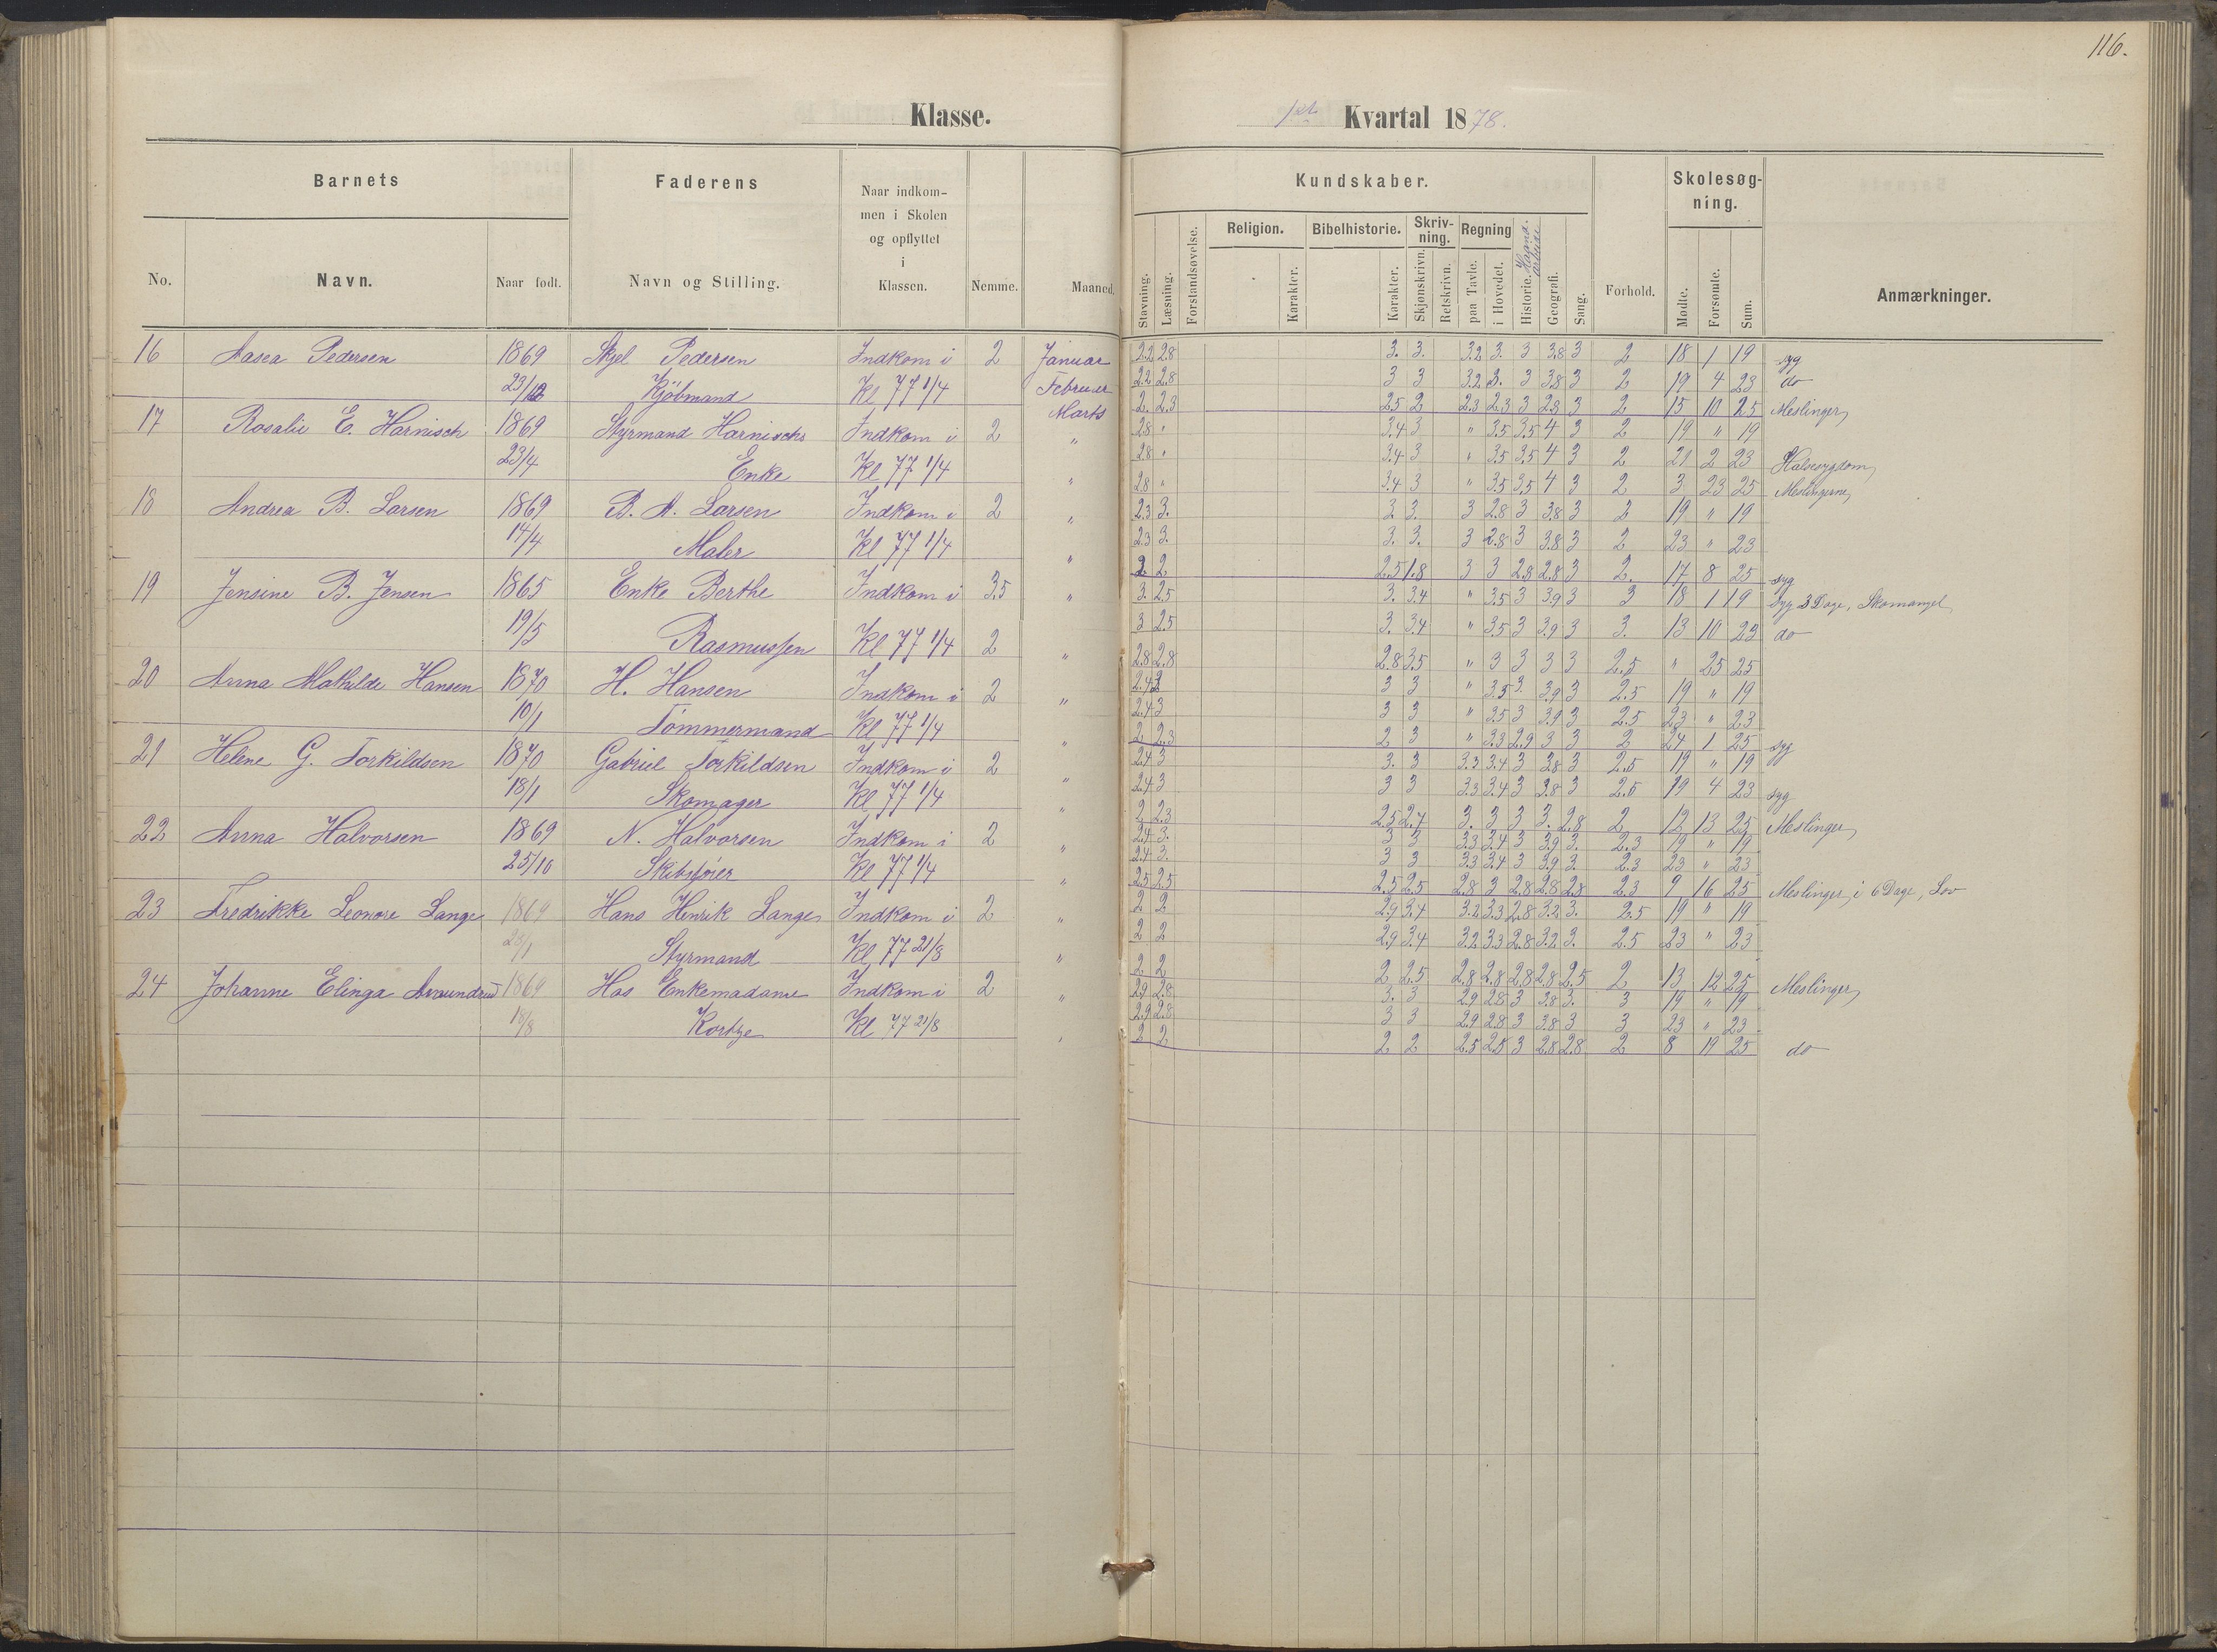 116.
Klasse.
1ste Kvartal 1878.
Barnets
Faderens
Naar indkommen i Skolen og opflyttet i Klassen.
Nemme.
Maaned.
Kundskaber.
Forhold.
Skolesøgning.
Anmærkninger.
No. Navn. Naar født. Navn og Stilling.
Stavning. Læsning. Forstandsøvelse. Religion. Karakter. Bibelhistorie. Karakter. Skrivning. Skjønskrivn. Retskrivn. Regning paa Tavle. i Hovedet. Historie. Haandarbeide Geografi. Sang. Mødte. Forsømte. Sum.
16 Aasea Pedersen 1869 Skjel Pedersen Indkom i 2 Januar 2.2 2.8 3. 3. 3.2 3. 3 3.8 3 2 18 1 19 syg
23/12 Kjöbmand Kl 77 1/4 Februar 2.2 2.8 3 3 3.2 3. 3 3.8 3 2 19 4 23 do
Marts 2. 2.3 2.5 2 2.3 2.3 3 2.8 3 2 15 10 25 Meslinger
17 Rosalie E. Harnisch 1869 Styrmand Harnischs Indkom i 2 " 2.8 " 3.4 3 " 3.5 3.5 4 3 2 19 " 19
23/4 Enke Kl 77 1/4 " 2.8 " 3.4 3 " 3.5 3.5 4 3 2 21 2 23 Halssygdom
2.8 " 3.4 3 " 3.5 3.5 4 3 2 3 23 25 Meslingerne
18 Andrea B. Larsen 1869 B. A. Larsen Indkom i 2 " 2.3 3. 3. 3. 3 2.8 3 3.8 3 2 19 " 19
14/4 Maler Kl 77 1/4 " 2.3 3. 3. 3. 3 2.8 3 3.8 3 2 23 " 23
2 2 2.5 1.8 3 3 2.8 2.8 3 2. 17 8 25 syg
19 Jensine B. Jensen 1865 Enke Berthe Indkom i 3.5 " 3. 2.5 3. 3.4 " 3.5 3 3.9 3 3 18 1 19 Syg 3 Dage, Skomangel
19/5 Rasmussen Kl 77 1/4 2 " 3 2.5 3. 3.4 " 3.5 3 3.9 3 3. 13 10 23 do
2.8 2.8 2.8 3.5 " 3 3 3 3 2.5 " 25 25
20 Anna Mathilde Hansen 1870 H. Hansen Indkom i 2 " 2.4 3 3 3 " 3.5 3. 3.9 3 2.5 19 " 19
10/1 Tömmermand Kl 77 1/4 " 2.4 3 3 3 " 3.5 3 3.9 3 2.5 23 " 23
2 2.3 2 3 " 3.3 2.9 3 3 2 24 1 25 syg
21 Helene G. Torkildsen 1870 Gabriel Torkildsen Indkom i 2 " 2.4 3 3. 3 3.3 3.4 3 3.8 3 2.5 19 " 19
18/1 Skomager Kl 77 1/4 " 2.4 3 3 3 3.3 3.4 3 3.8 3 2.5 19 4 23 syg
2 2.3 2.5 2.4 3. 3 3 3. 2.8 2 12 13 25 Meslinger
22 Anna Halvorsen 1869 N. Halvorsen Indkom i 2 " 2.4 3. 3 3 3.3 3.4 3 3.9 3. 2.3 19 " 19
25/10 Skibsfører Kl 77 1/4 " 2.4 3. 3 3 3.3 3.4 3 3.9 3. 2.3 23 " 23
2.5 2.5 2.5 2.5 2.8 3 2.8 2.8 2.8 2.3 9 16 25 Meslinger, i 6 Dage, Lov
23 Fredrikke Leonore Lange 1869 Hans Henrik Lange Indkom i 2 " 2 2 2.9 3.4 3.2 3.3 2.8 3.2 3. 2.5 19 " 19
28/1 Styrmand Kl 77 21/8 " 2 2 2.9 3.4 3.2 3.3 2.8 3.2 3. 2.5 23 " 23
2 2 2 2.5 2.8 2.8 2.8 2.8 2.5 2 13 12 25 Meslinger
24 Johanne Elinga 1869 Hos Enkemadame Indkom i 2 " 2.9 2.8 3. 3 2.9 2.8 3 3.8 3. 3 19 " 19
18/8 Kl 77 21/8 " 2.9 2.8 3 3 2.9 2.8 3 3.8 3 3 23 " 23
2 2 2 2 2.5 2.5 3 2.8 2.8 2 8 19 25 do